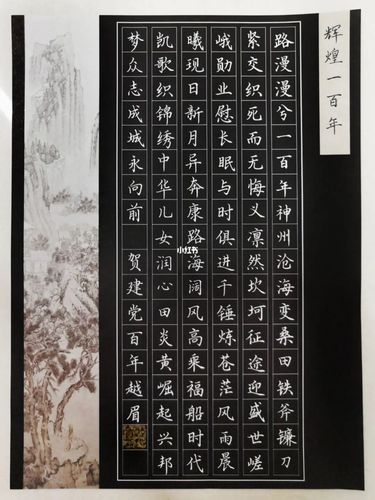 辉煌一百年
路漫漫兮一百年神州沧海变桑田铁斧镰刀
紧交织死而无悔义凛然坎坷征途迎盛世嵯
峨勋业慰长眠与时俱进千锤炼苍茫风雨晨
曦现日新月异奔康路海阔风高乘福船时代
凯歌织锦绣中华儿女润心田炎黄崛起兴邦
梦众志成城永向前 贺建党百年越眉
小红书